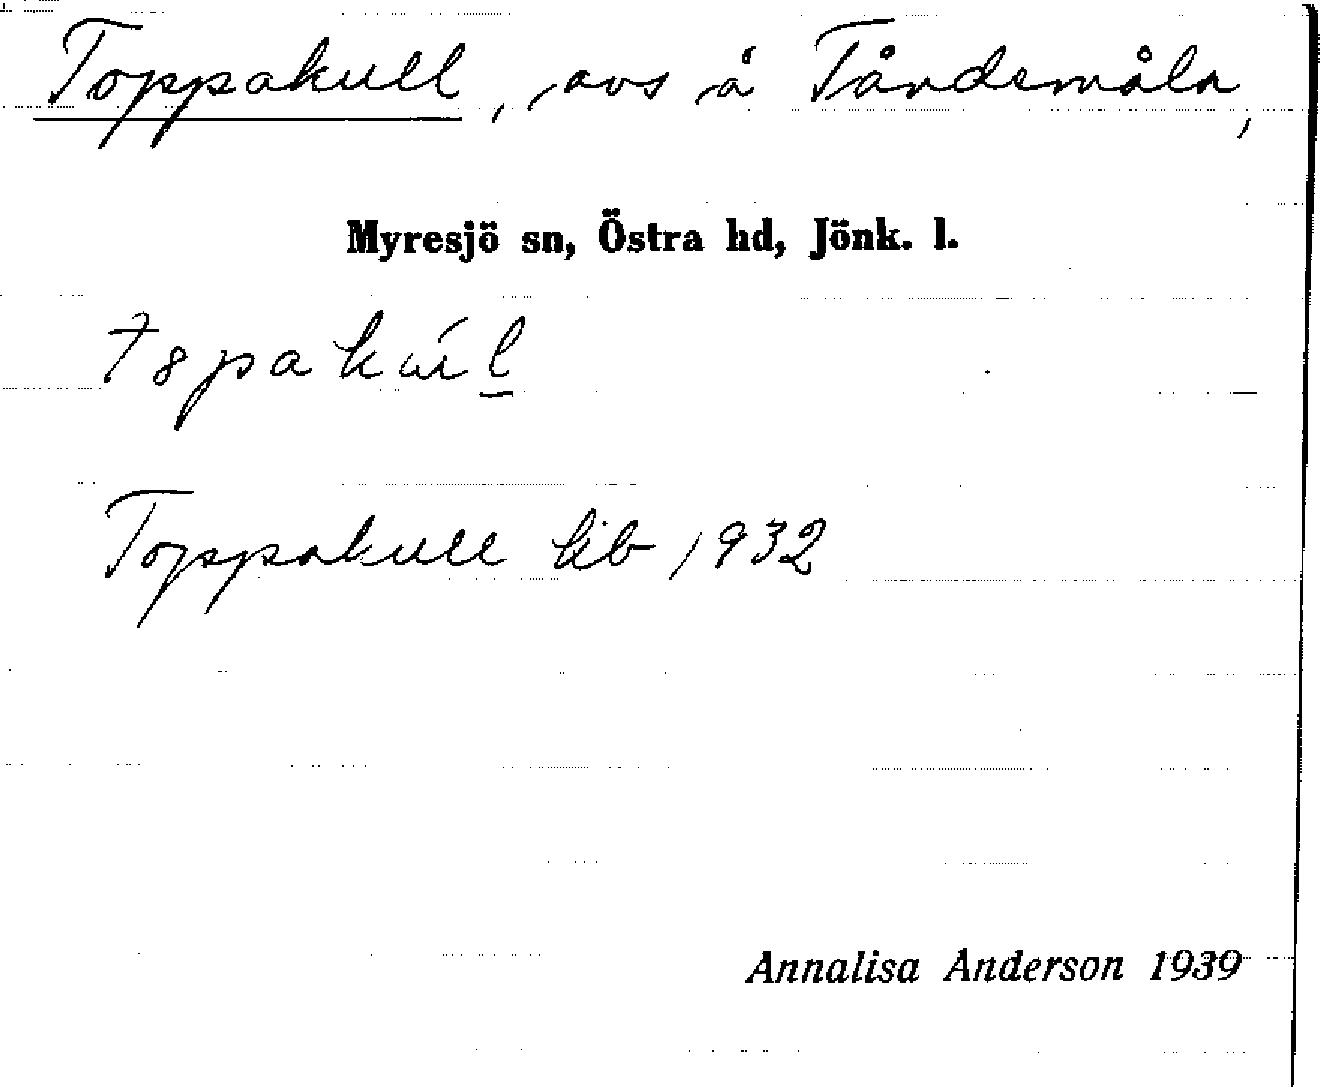 Toppakull, avs å Tåndsmåla,
Myresjö sn, Östra hd, Jönk. l.
Toppakull lib 1932
Annalisa Anderson 1939